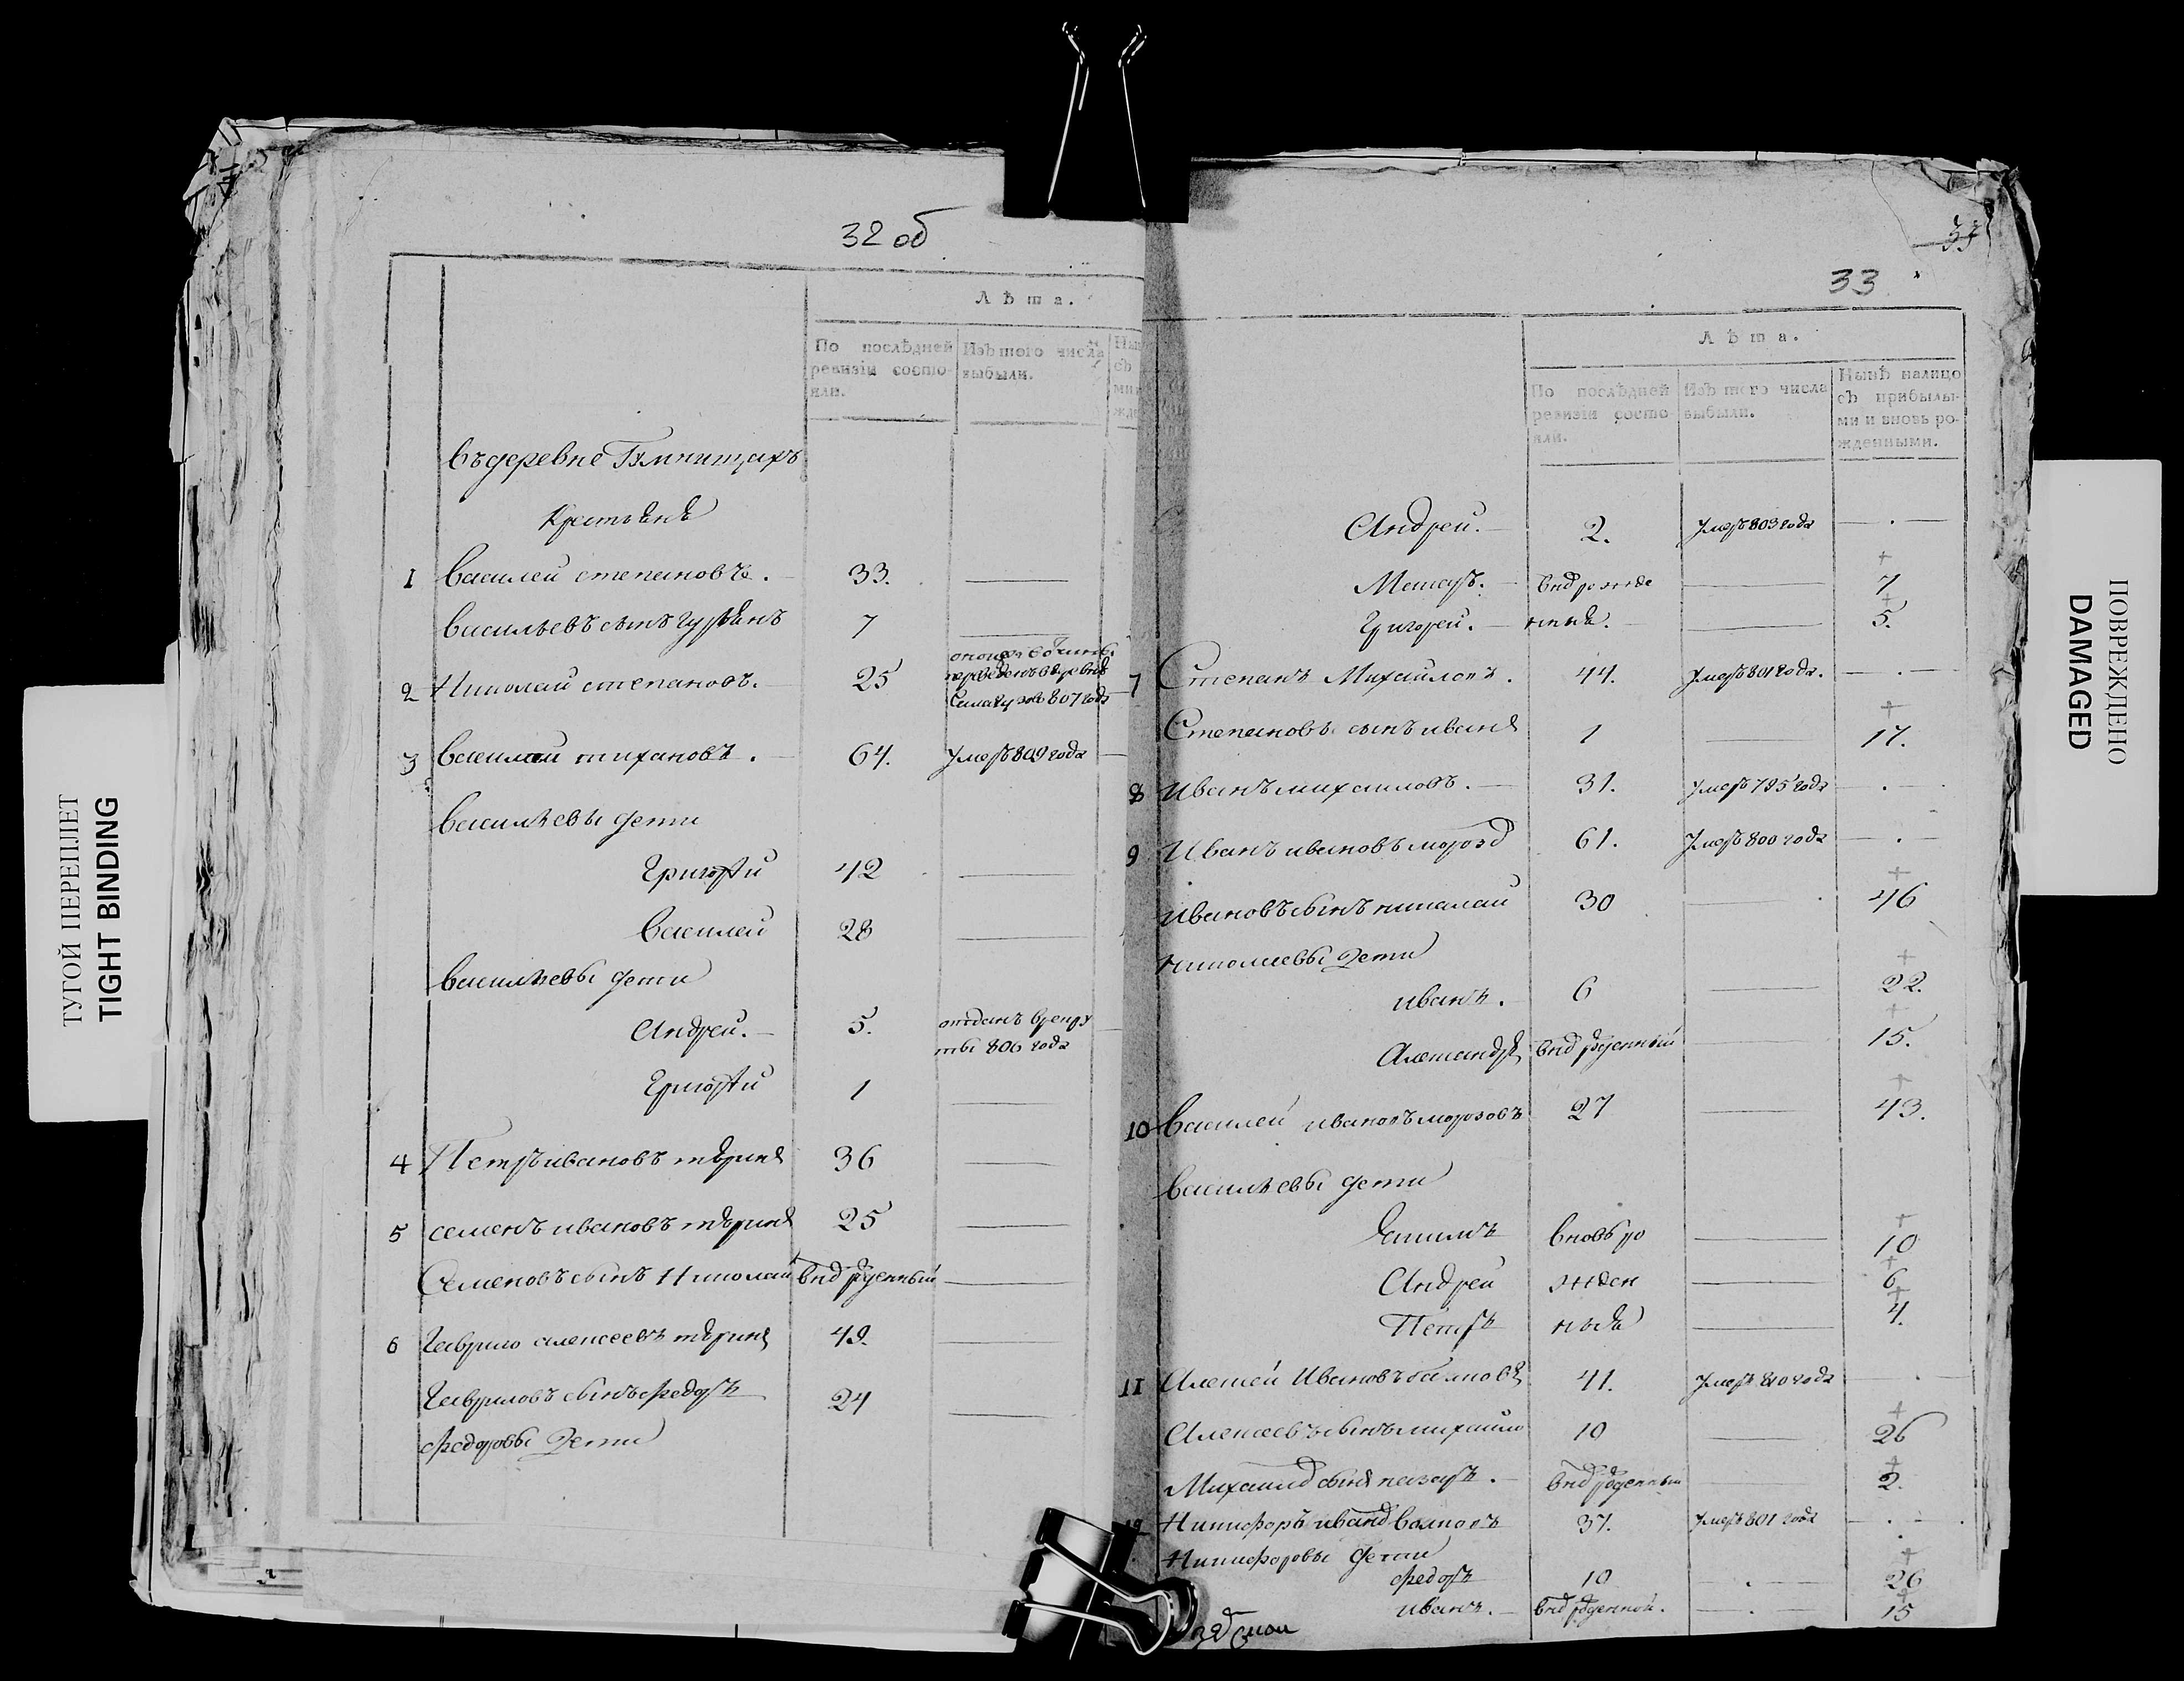 ТУГОЙ ПЕРЕПЛЕТ
TIGHT BINDING
32 об
Лѣта.
По послѣдней ревизіи состояли.
Изъ того числа выбыли.
въ деревне Гумнищахъ
Крестьянѣ
1 Василей степановъ. 33.
Васильевъ сынъ Гурьянъ 7
2 Николай степановъ. 25
807 года
3 Василей тихановъ. 64. Умеръ 809 года
Васильевы дети
Григорей 42
Василей 28
Васильевы дети
Андрей. 5. отданъ врекру
ты 806 года
Григорей 1
4 Петръ ивановъ 36
5 семенъ ивановъ 25
Семеновъ сынъ Николай
6 Гаврило алексеевъ 49.
Гавриловъ сынъ федоръ 24
федоровы дети
33
33
Лѣта.
По послѣдней ревизіи состояли.
Изъ того числа выбыли.
Нынѣ налицо съ прибылыми и вновь рожденными.
Андрей. 2. Умеръ 803 года
7
Григорей. 5.
7 Степанъ Михайловъ. 44. Умеръ 801 года.
Степановъ сынъ иванъ 1 17.
8 Иванъ михаиловъ. 31. Умеръ 795 года
9 Иванъ ивановъ морозо 61. Умеръ 800 года
Ивановъ сынъ николай 30 46
Николаевы дети
иванъ. 6 22.
Александръ 15.
10 Василей ивановъ морозовъ 27 43.
Васильевы дети
вновь ро 10
Андрей жден 6
Петръ ныя 4.
11 Алексей Ивановъ 41. Умеръ 810 года
Алексеевъ сынъ михайло 10 26
сынъ назаръ. 2.
Никифоръ 37. Умеръ 801 года
Никифоровы дети
федоръ 10 26
иванъ. 15
ПОВРЕЖДЕНО
DAMAGED